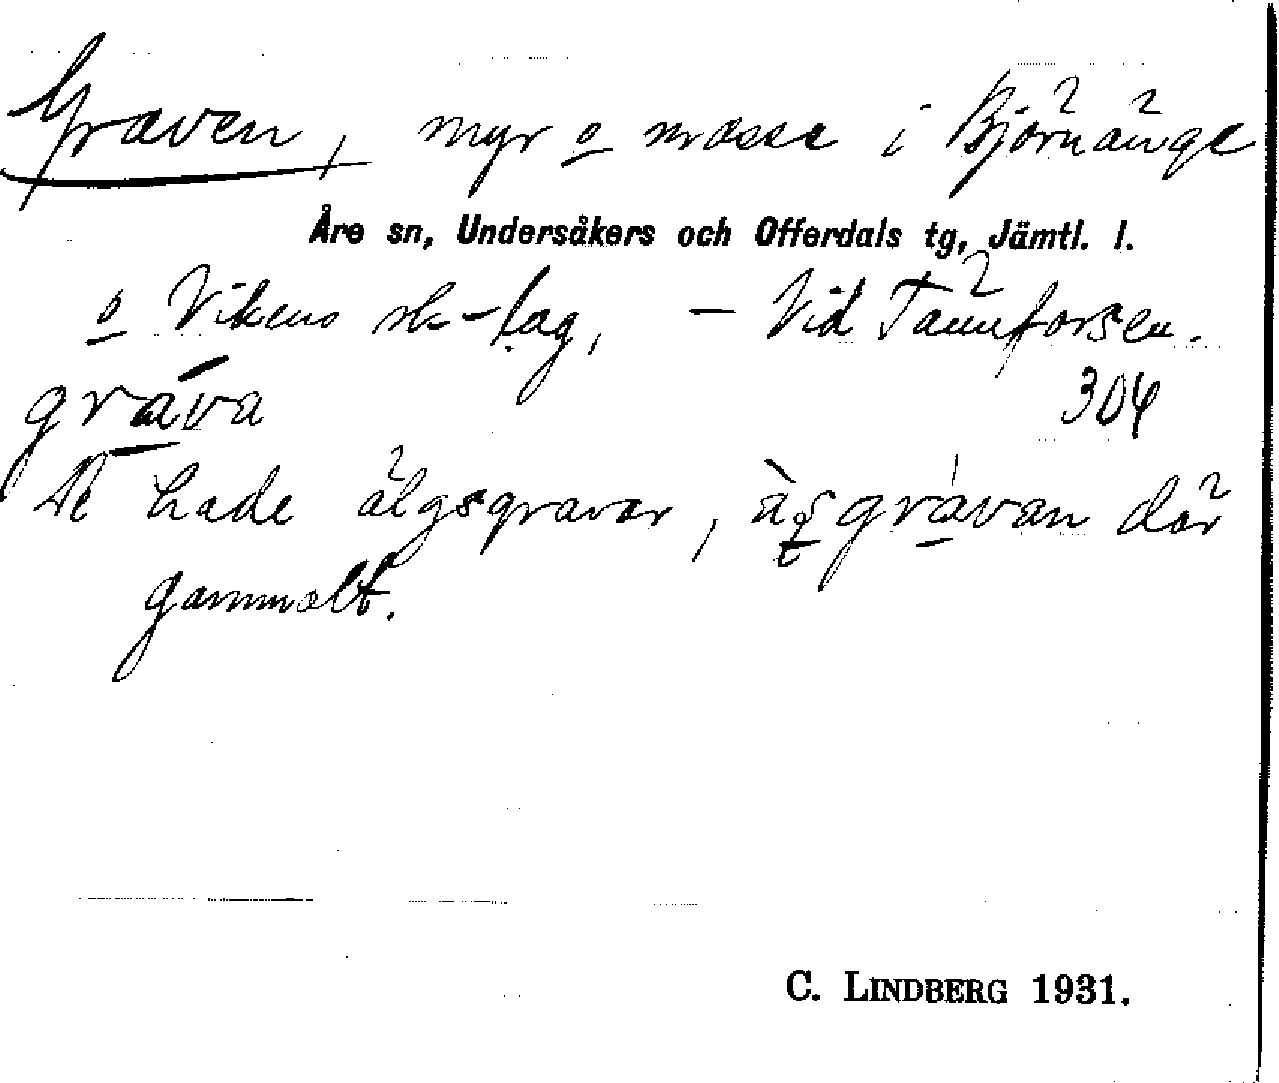 Graven, myr o mosse i Björnänge
Åre sn, Undersåkers och Offerdals tg, Jämtl. l.
o Vikens sk-lag, – Vid Tännforsen.
gráva
304
De hade älgsgravar, grávan där
gammalt.
C. LINDBERG 1931.